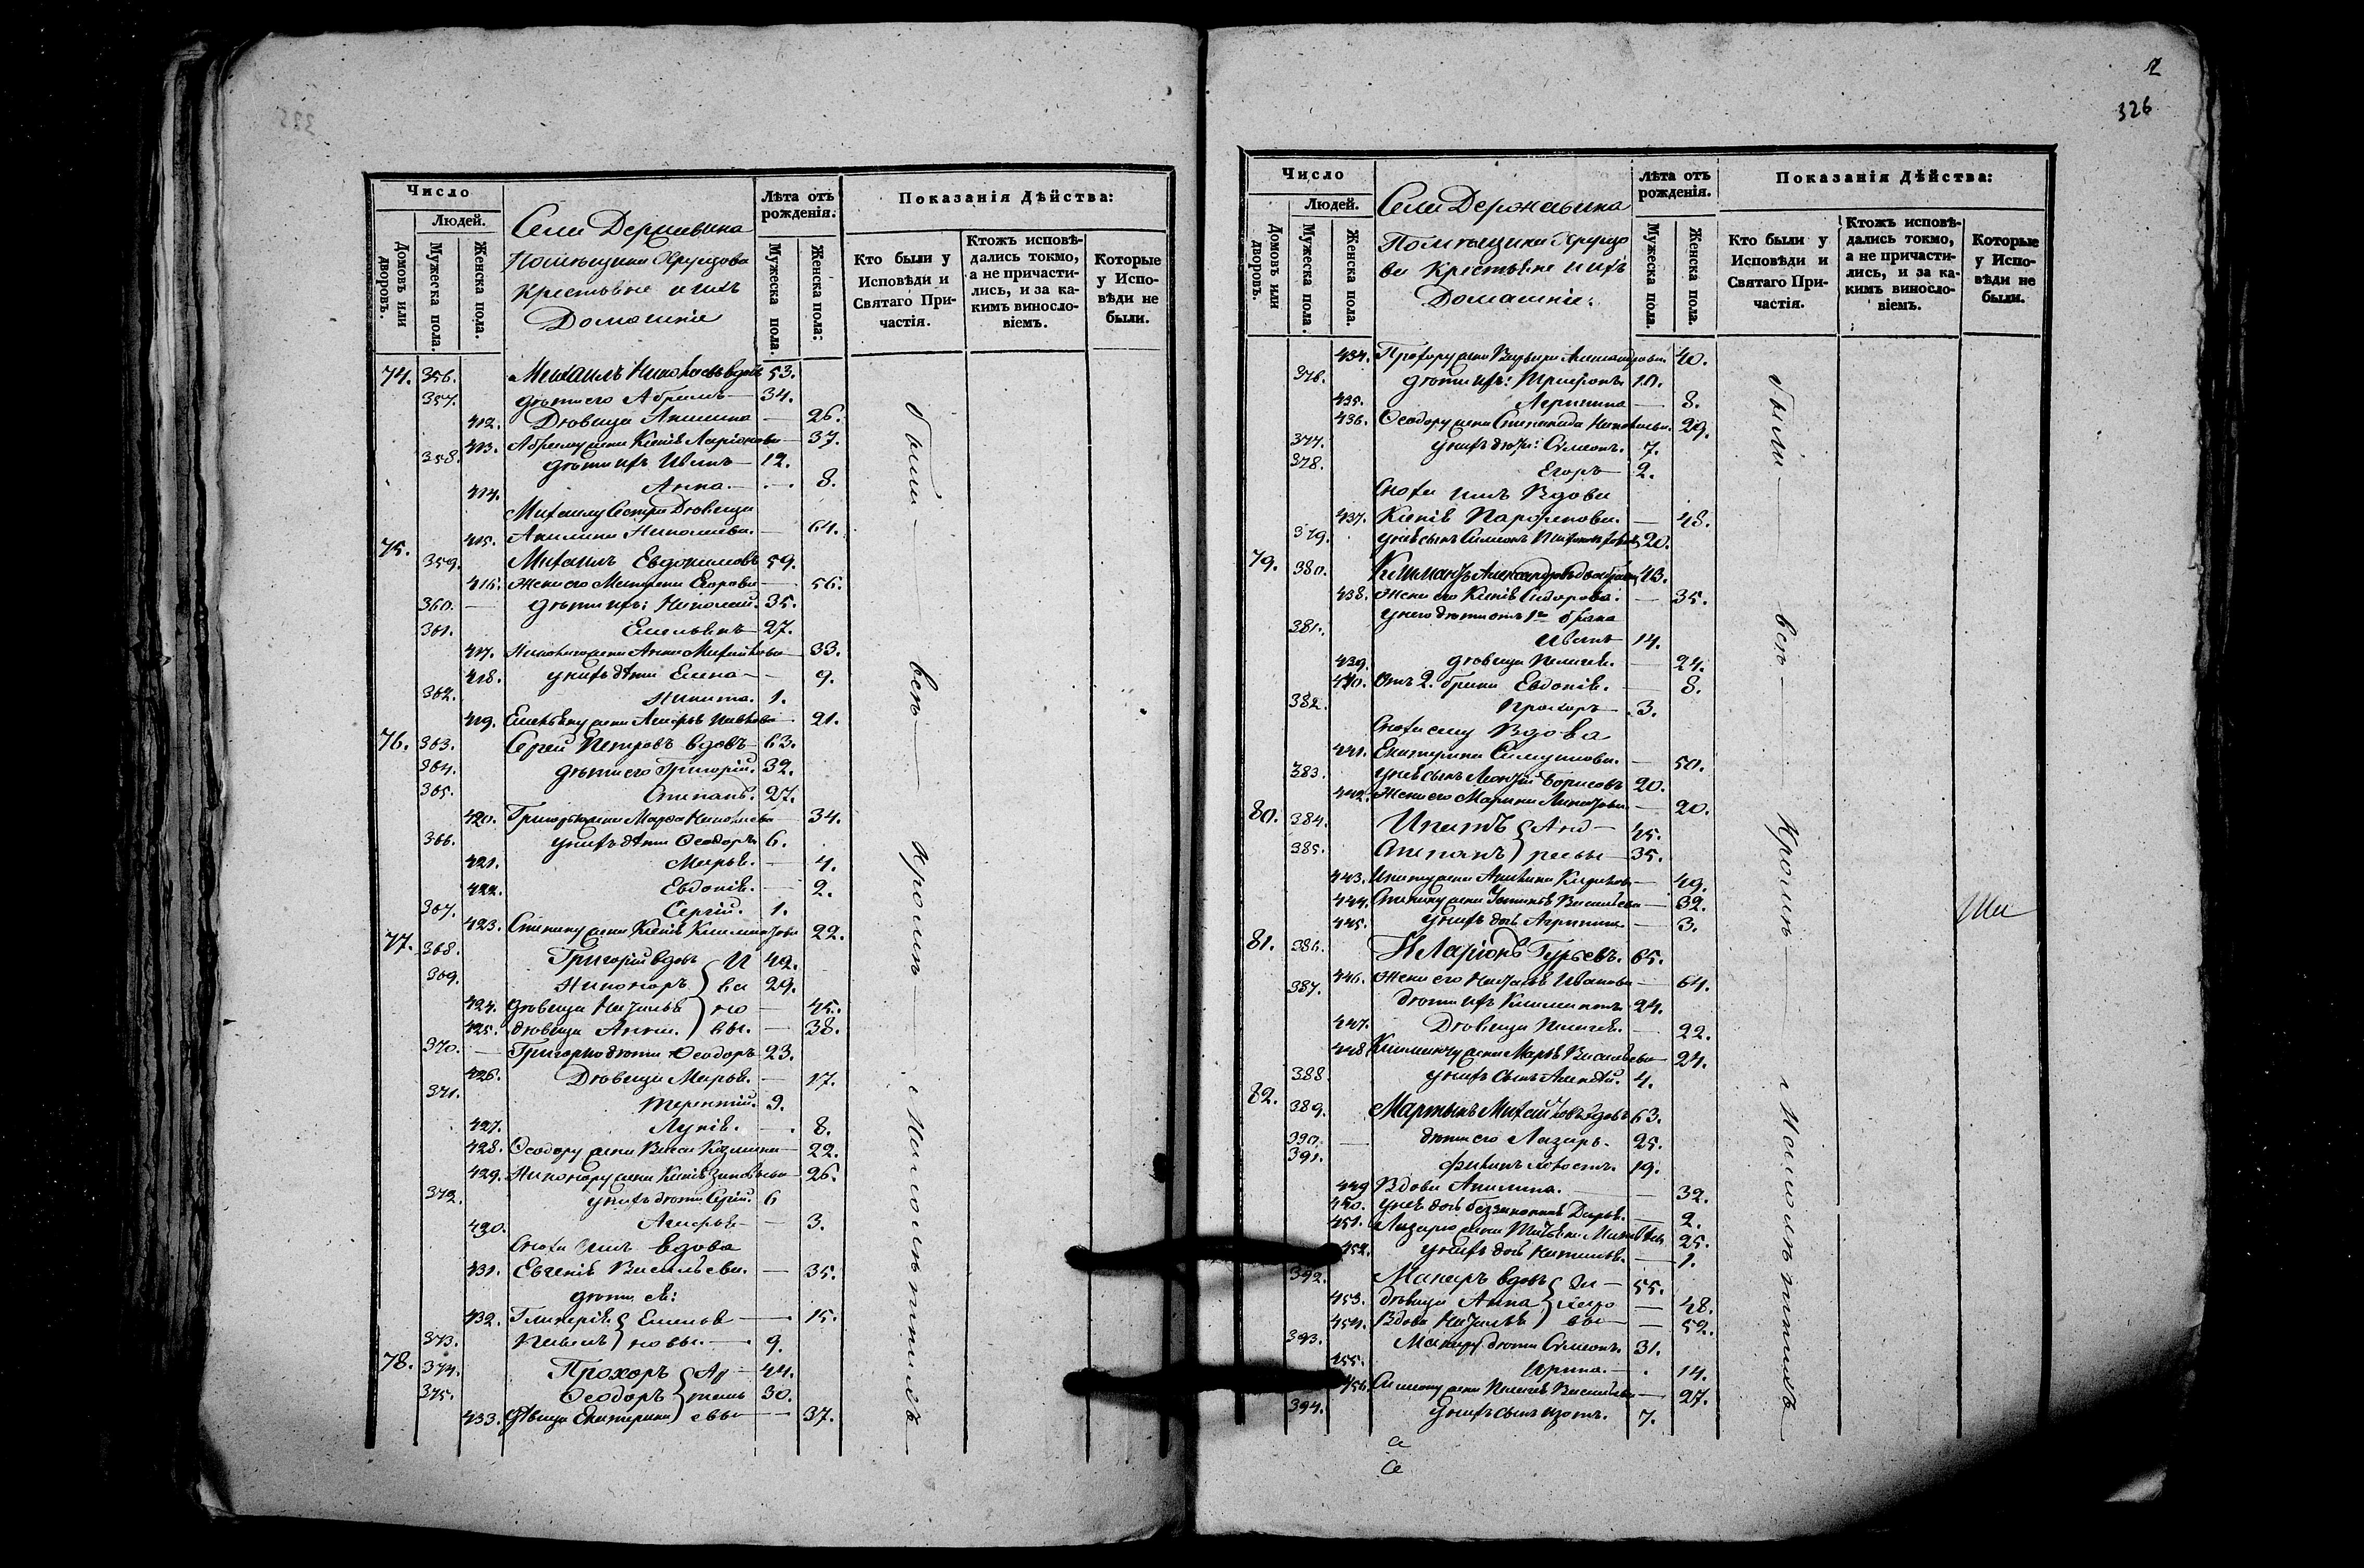 325
Число
Людей.
Домовъ или дворовъ.
Мужеска пола.
Женска пола.
Села Державина
Помѣщика Хрущова
Крестьяне и ихъ
Домашніе
Лѣта отъ рожденія.
Мужеска пола.
Женска пола:
Показанія Дѣйства:
Кто были у Исповѣди и Святаго Причастія.
Ктожъ исповѣдались токмо, а не причастились, и за какимъ винословіемъ.
Которые у Исповѣди не были.
74. 356. Михаилъ Николаевъ вдовъ 53.
357. дѣти его Абрамъ 34.
412. Дѣвица Акилина 26.
413. Абраму жена Ксенія Ларіонова 37.
358. дѣти ихъ Иванъ 12.
414. Анна. 8.
Михаилу Сестра Дѣвица
415. Акилина Николаева. 64.
75. 359. Михаилъ Евдокимовъ 59.
416. Жена его Матрена Егорова 56.
360. дѣти ихъ: Николай. 35.
361. Емельянъ 27.
417. Николаю жена Анна Михайлова 33.
418. у нихъ дѣти Елена 9.
362. Никита. 1.
419. Емельяну жена Агафья 21.
76. 363. Сергей Петровъ вдовъ 63.
364. дѣти его Григорій. 32.
365. Степанъ. 27.
420. Григорью жена Марѳа Николаева 34.
366. у нихъ дѣти Ѳеодоръ 6.
421. Марья. 4.
422. Евдокія. 2.
367. Сергій. 1.
423. Степану жена Ксенія 22.
77. 368. Григорій вдовъ И 49.
369. Никоноръ ва 29.
424. дѣвица Наталья но 45.
425. дѣвица Анна. вы. 38.
370. Григорію дѣти Ѳеодоръ 23.
426. Дѣвица Марья. 17.
371. Терентій. 9.
427. Лукія. 8.
428. Ѳеодору жена Васса Козмина 22.
429. Никонору жена Ксенія Зиновьева 26.
372. у нихъ дѣти Сергій. 6
430. Агафья 3.
Сноха имъ вдова
431. Евгенія Васильева. 35.
дѣти ея:
432. Гликерія Емелья 15.
373. Павелъ новы. 9.
78. 374. Прохоръ Ар 44.
375. Ѳеодоръ темь 30.
433. Дѣвица Екатерина евы 37.
были всѣ кромѣ малолѣтнихъ
326
Число
Людей.
Домовъ или дворовъ.
Мужеска пола.
Женска пола.
Села Державина
Помѣщика Хрущо
ва Крестьяне и ихъ
Домашніе:
Лѣта отъ рожденія.
Мужеска пола.
Женска пола.
Показанія Дѣйства:
Кто были у Исповѣди и Святаго Причастія.
Ктожъ исповѣдались токмо, а не причастились, и за какимъ винословіемъ.
Которые у Исповѣди не были.
434. Прохору жена 40.
376. дѣти ихъ: Трифонъ. 10.
435. 8.
436. Ѳеодору жена Степанида 29.
377. у нихъ дѣти: Симеонъ. 7.
378. Егоръ 2.
Сноха имъ Вдова
437. Ксенія Парѳенова. 48.
379. у нея сынъ Симеонъ 20.
79. 380. 43.
438. Жена его Ксенія Сидорова. 35.
у него дѣти отъ 1го брака
381. Иванъ 14.
439. дѣвица Пелагея. 24.
440. Отъ 2. брака Евдокія. 8.
382. Прохоръ 3.
Сноха ему Вдова
441. Екатерина 50.
383. у нея сынъ Леонтій Борисовъ 20.
442. Жена его Марина 20.
80. 384. Игнатъ Анд 45.
385. Степанъ реевы 35.
443. Игнату жена 49.
444. Степану жена Устинья Васильева 32.
445. у нихъ дочь Агрипина 3.
81. 386. Иларіонъ Гурьевъ. 65.
446. Жена его Наталья Иванова 64.
387. дѣти ихъ 24.
447. Дѣвица Пелагея. 22.
448. жена Марья Васильева 24.
388. у нихъ сынъ Алексѣй. 4.
82. 389. Мартынъ Михайловъ вдовъ 63.
390. дѣти его Лазарь. 25.
391. Филипъ холостъ. 19.
449 Вдова Акилина. 32.
450. у нея дочь беззаконная Дарья. 2.
451. Лазарю жена Татьяна 25.
452. у нихъ дочь Наталья. 1.
392. Макаръ вдовъ За 55.
453. дѣвица Анна харо 48.
454. Вдова Наталья вы 52.
393. Макару дѣти Симеонъ. 31.
455. Ирина. 14.
456. Симеону жена Пелагея Васильева 27.
394. У нихъ сынъ Изотъ. 7.
были всѣ кромѣ малолѣтнихъ